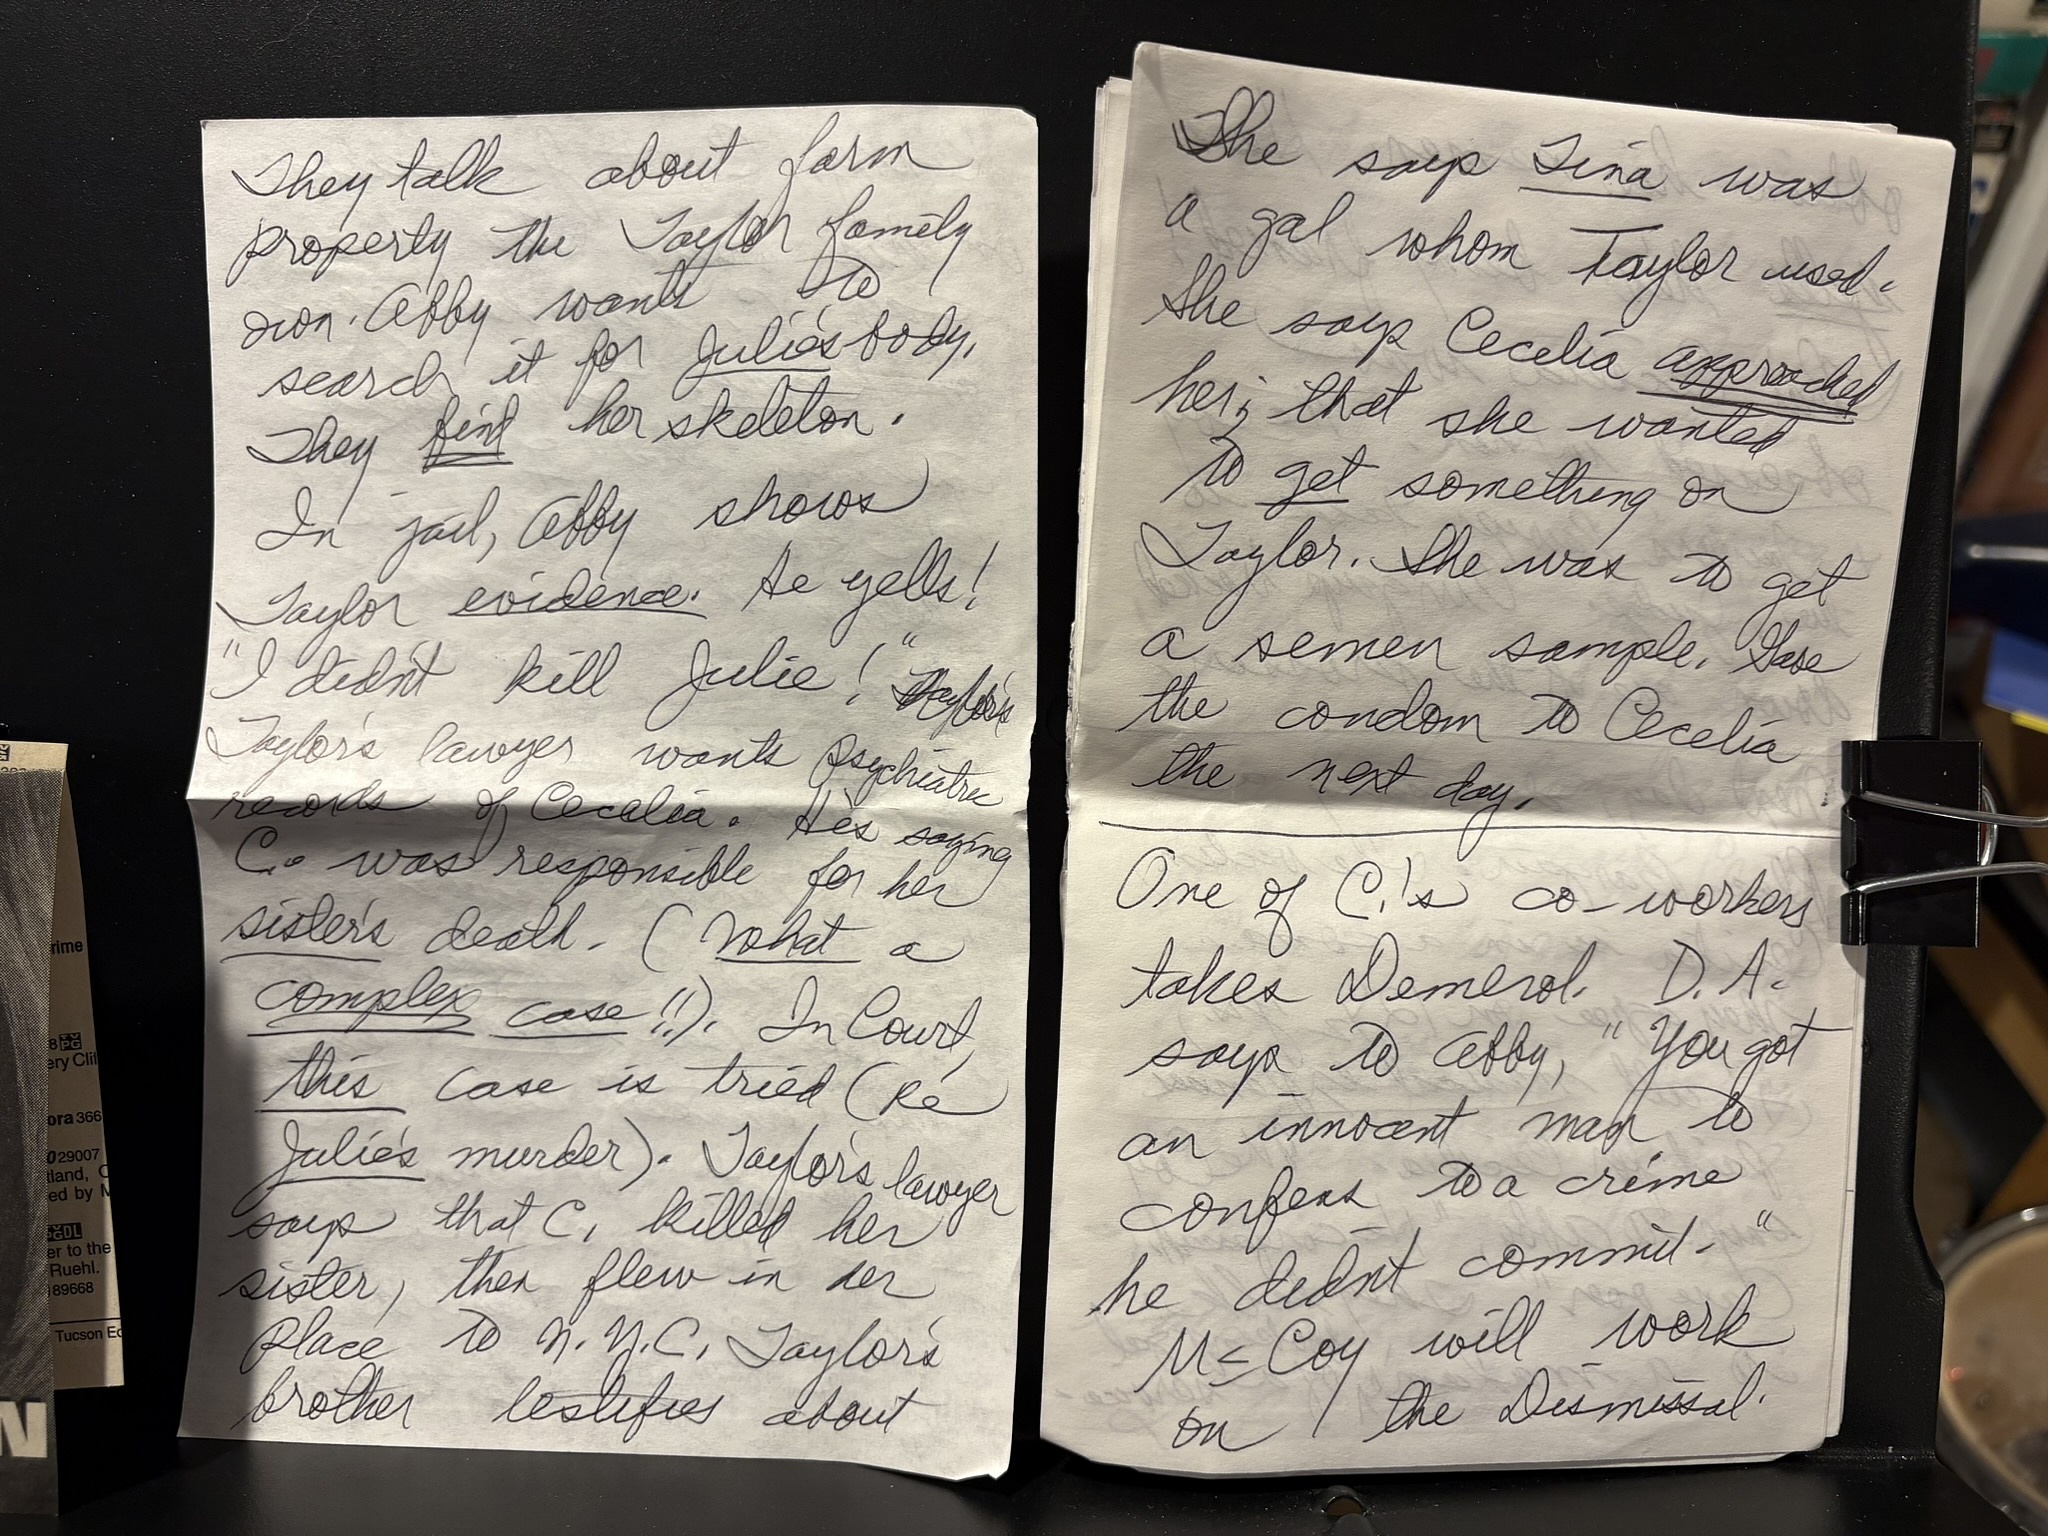 They talk about farm
property the Taylor family
own. Abby wants to
search it for Julie's body.
They find her skeleton.
In jail, Abby shows
Taylor evidence. He yells!
"I didn't kill Julie!" Taylor's
Taylor's lawyer wants psychiatric
records of Cecelia. He's saying
C. was responsible for her
sister's death. (What a
complex case!!). In Court,
this case is tried (Re
Julie's murder). Taylor's lawyer
says that C. killed her
sister, then flew in her
place to N.Y.C. Taylor's
brother testifies about
She says Tina was
a gal whom Taylor used.
She says Cecelia approached
her; that she wanted
to get something on
Taylor. She was to get
a semen sample. Gave
the condom to Cecelia
the next day.
One of C.'s co-workers
takes Demerol. D.A.
says to Abby, "You got
an innocent man to
confess to a crime
he didn't commit."
McCoy will work
on the Dismissal.
rime
ery Cli
ora 366
029007
tland, C
ed by M
er to the
Ruehl.
89668
Tucson Ed
N